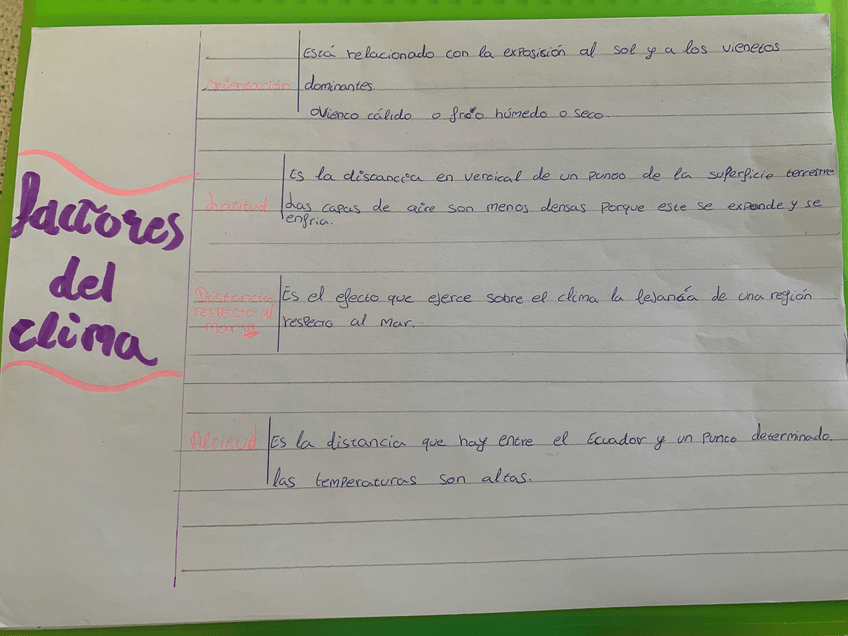 factores
del
clima
orientación
Está relacionado con la exposisión al sol y a los vienetos
dominantes.
o Viento cálido o frío húmedo o seco.
Latitud
Es la distancia en vertical de un punto de la superficie terrestre
Las capas de aire son menos densas porque este se expende y se
enfria.
Distancia
respecto al
mar
Es el efecto que ejerce sobre el clima la lejanía de una región
respecto al mar.
Altitud
Es la distancia que hay entre el Ecuador y un punto determinado.
las temperaturas son altas.